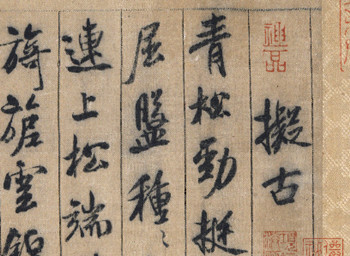 擬古
青松勁挺
屈盤種〻
連上松端
旖旎雲錦